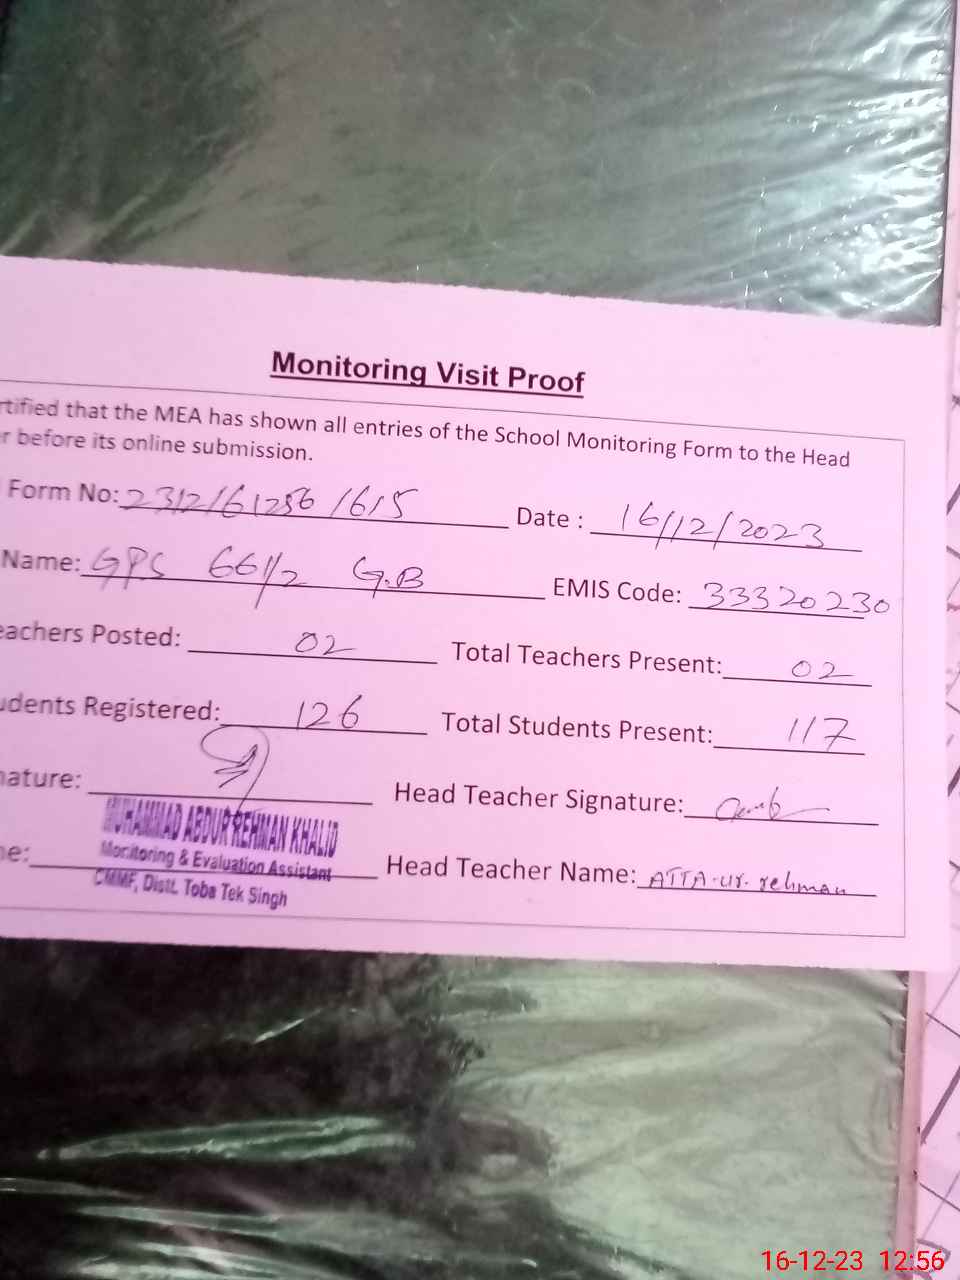 Monitoring Visit Proof
rtified that the MEA has shown all entries of the School Monitoring Form to the Head
r before its online submission.
Form No: 2312/61256 1615 Date : 16/12/2023
Name: GPS 661/2 G.B EMIS Code: 33320230
eachers Posted: 02 Total Teachers Present: 02
udents Registered: 126 Total Students Present: 117
nature: Head Teacher Signature:
MUHAMMAD ABDUR REHMAN KHALID
Monitoring & Evaluation Assistant
ne: Head Teacher Name: ATTA-ur-rehman
CMMF, Distt. Toba Tek Singh
16-12-23 12:56